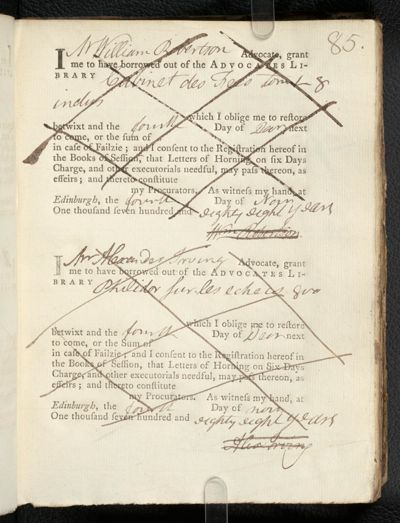 85.
I Mr William Robertson Advocate, grant
me to have borrowed out of the ADVOCATES LI-
BRARY Cabinet des Fees tom. 8
indus
which I oblige me to restore
betwixt and the fourth Day of Janry next
to come, or the sum of
in case of Failzie; and I consent to the Registration hereof in
the Books of Session, that Letters of Horning on six Days
Charge, and other executorials needful, may pass thereon, as
effeirs; and thereto constitute
my Procurators. As witness my hand, at
Edinburgh, the fourth Day of Novr
One thousand seven hundred and eighty eight years
Wm Robertson
I Mr Alexander Irving Advocate, grant
me to have borrowed out of the ADVOCATES LI-
BRARY Philidor sur les echecs 8vo
which I oblige me to restore
betwixt and the fourth Day of Janr next
to come, or the Sum of
in case of Failzie; and I consent to the Registration hereof in
the Books of Session, that Letters of Horning on Six Days
Charge, and other executorials needful, may pass thereon, as
effeirs; and thereto constitute
my Procurators. As witness my hand, at
Edinburgh, the fourth Day of novr
One thousand seven hundred and eighty eight years
Alex Irving